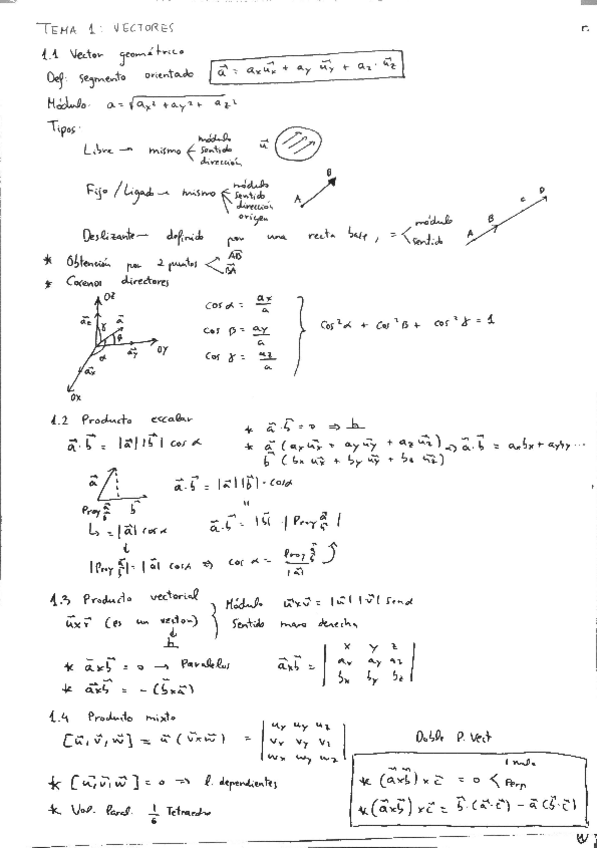 TEMA 1: VECTORES
1.1 Vector geométrico
Def: segmento orientado a⃗ = ax u⃗x + ay u⃗y + az · u⃗z
Módulo: a = √ax² + ay² + az²
Tipos:
Libre → mismo < módulo sentido dirección u⃗
Fijo/Ligado → mismo módulo sentido dirección origen A B
Deslizante → definido por una recta base, = < módulo sentido A B C D
* Obtención por 2 puntos < AB⃗ BA⃗
* Cosenos directores
OZ a⃗z a⃗ γ β α a⃗y OY a⃗x OX
cos α = ax/a
cos β = ay/a
cos γ = az/a
cos²α + cos²β + cos²γ = 1
1.2 Producto escalar
a⃗·b⃗ = |a⃗||b⃗| cos α
* a⃗·b⃗ = 0 ⇒ ⊥
* a⃗ (ax u⃗x + ay u⃗y + az u⃗z) ⇒ a⃗·b⃗ = axbx + ayby...
b⃗ (bx u⃗x + by u⃗y + bz u⃗z)
a⃗ b⃗ Proy a⃗/b⃗
a⃗·b⃗ = |a⃗||b⃗|·cosα
↳ = |a⃗| cos α
a⃗·b⃗ = |b⃗| · |Proy a⃗/b⃗|
|Proy a⃗/b⃗| = |a⃗| cosα ⇒ cos α = Proy a⃗/b⃗ / |a⃗|
1.3 Producto vectorial
u⃗xv⃗ (es un vector) ⊥
Módulo u⃗xv⃗ = |u⃗| |v⃗| senα
Sentido mano derecha
* a⃗xb⃗ = 0 → Paralelos
* a⃗xb⃗ = -(b⃗xa⃗)
a⃗xb⃗ = | x y z
ax ay az
bx by bz |
1.4 Producto mixto
[u⃗,v⃗,w⃗] = u⃗ (v⃗xw⃗) = | ux uy uz
vx vy vz
wx wy wz |
* [u⃗,v⃗,w⃗] = 0 ⇒ l. dependientes
* Vol. Paral. 1/6 Tetraedro
Doble P. Vect
* (a⃗xb⃗) x c⃗ = 0 < 1 nulo Perp
* (a⃗xb⃗) x c⃗ = b⃗·(a⃗·c⃗) - a⃗(b⃗·c⃗)
1